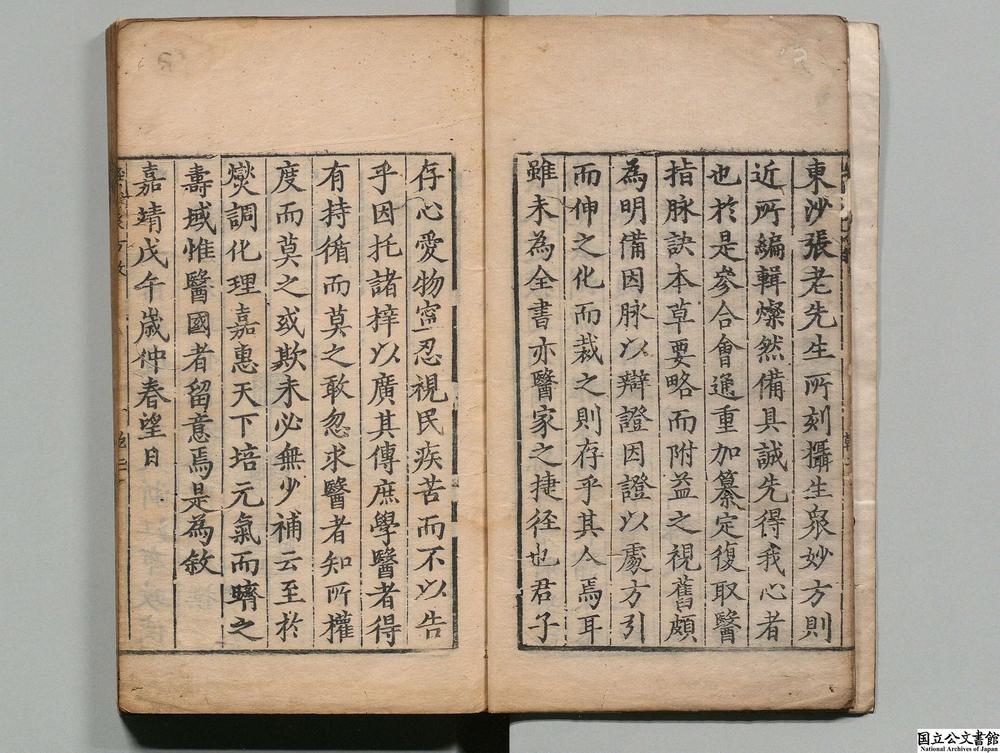 東沙張老先生所刻攝生衆妙方則
近所編輯燦然備具誠先得我心者
也於是參合會通重加纂定復取醫
指脉訣本草要略而附益之視舊頗
為明備因脉以辯證因證以處方引
而伸之化而裁之則存乎其人焉耳
雖未為全書亦醫家之捷径也君子
存心愛物寧忍視民疾苦而不以告
乎因托諸梓以廣其傳庶學醫者得
有持循而莫之敢忽求醫者知所權
度而莫之或欺未必無少補云至於
燮調化理嘉惠天下培元氣而躋之
壽域惟醫國者留意焉是為敘
嘉靖戊午歲仲春望日
国立公文書館
National Archives of Japan